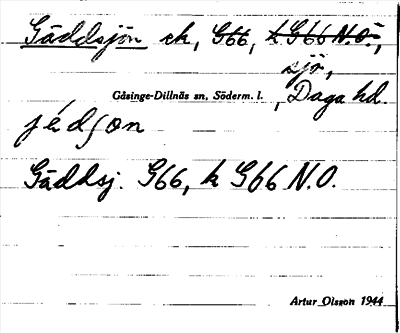 Gäddsjön ek, G66, k G66 N.O.,
sjö,
Gåsinge-Dillnäs sn, Söderm. l. , Daga hd.
jédson
Gäddsj. G66, k G66 N.O.
Artur Olsson 1944